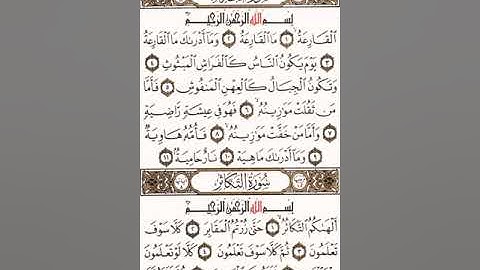 بِسْمِ اللَّهِ الرَّحْمَٰنِ الرَّحِيمِ
الْقَارِعَةُ ١ مَا الْقَارِعَةُ ٢ وَمَا أَدْرَىٰكَ مَا الْقَارِعَةُ
٣ يَوْمَ يَكُونُ النَّاسُ كَالْفَرَاشِ الْمَبْثُوثِ ٤
وَتَكُونُ الْجِبَالُ كَالْعِهْنِ الْمَنفُوشِ ٥ فَأَمَّا
مَن ثَقُلَتْ مَوَازِينُهُ ٦ فَهُوَ فِي عِيشَةٍ رَّاضِيَةٍ
٧ وَأَمَّا مَنْ خَفَّتْ مَوَازِينُهُ ٨ فَأُمُّهُ هَاوِيَةٌ
٩ وَمَا أَدْرَىٰكَ مَا هِيَهْ ١٠ نَارٌ حَامِيَةٌ ١١
سُورَةُ التَّكَاثُرِ
بِسْمِ اللَّهِ الرَّحْمَٰنِ الرَّحِيمِ
أَلْهَىٰكُمُ التَّكَاثُرُ ١ حَتَّىٰ زُرْتُمُ الْمَقَابِرَ ٢ كَلَّا سَوْفَ
تَعْلَمُونَ ٣ ثُمَّ كَلَّا سَوْفَ تَعْلَمُونَ ٤ كَلَّا لَوْ تَعْلَمُونَ